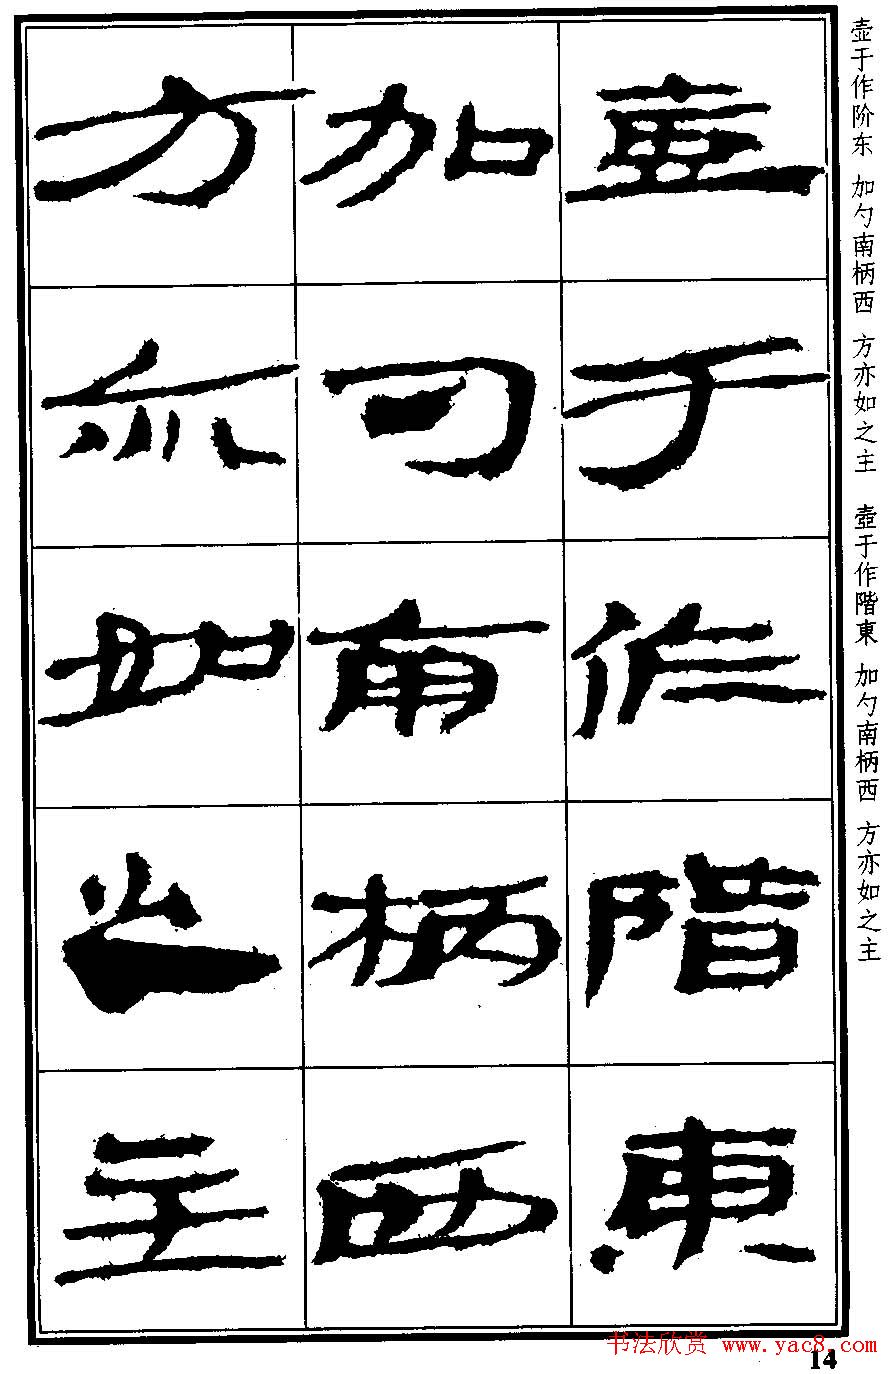 壺于作階東
加勺南柄西
方亦如之主
壶于作阶东 加勺南柄西 方亦如之主 壺于作階東 加勺南柄西 方亦如之主
书法欣赏 www.yac8.com
14